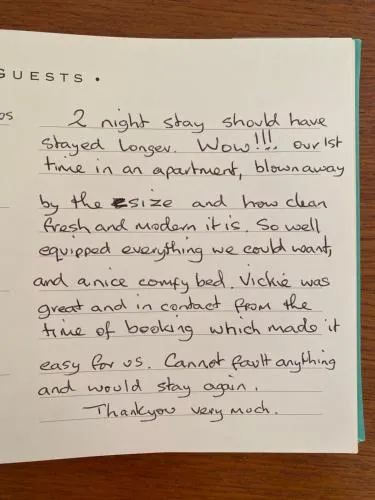 GUESTS •
os
2 night stay should have
stayed longer. Wow!!! our 1st
time in an apartment, blown away
by the size and how clean
fresh and modern it is. So well
equipped everything we could want,
and a nice comfy bed. Vickie was
great and in contact from the
time of booking which made it
easy for us. Cannot fault anything
and would stay again.
Thankyou very much.